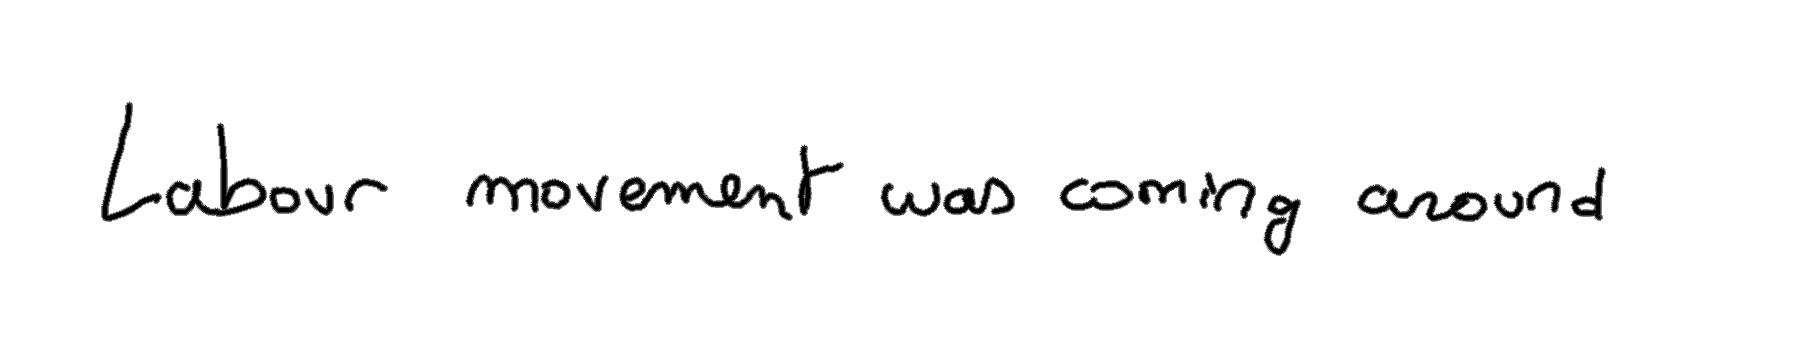 Labour movement was coming around